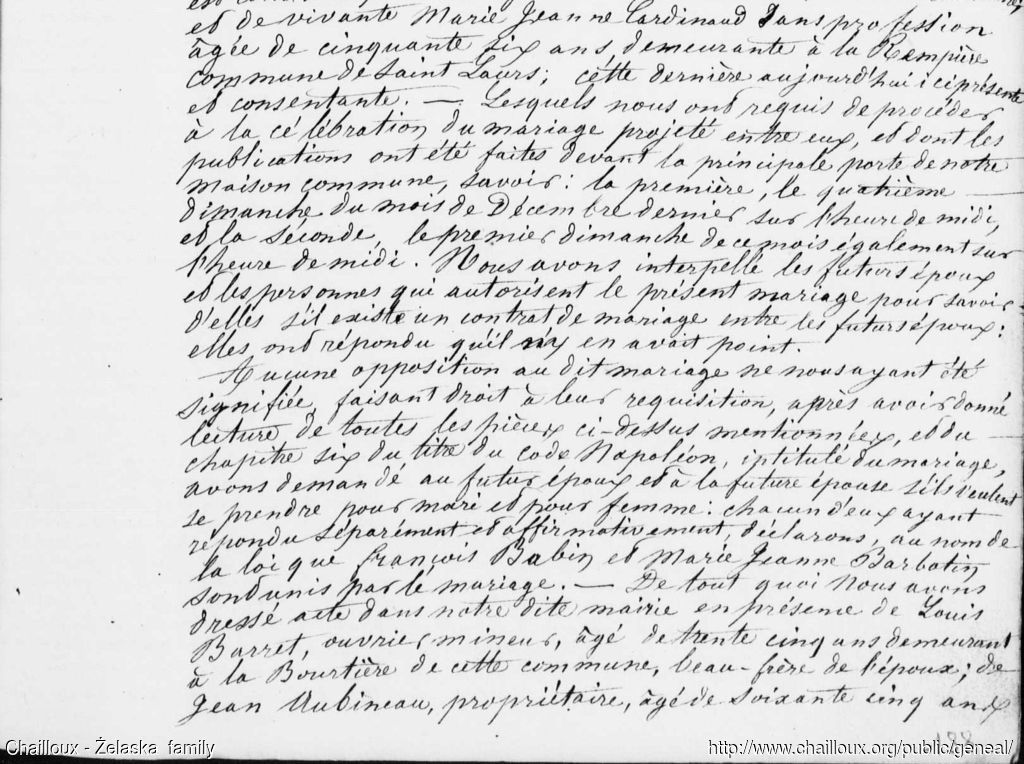 et de vivante Marie Jeanne Cardinaud Sans profession
âgée de cinquante six ans demeurante à la Rempière
Commune de Saint Laurs; cette dernière aujourd'hui ici présente
et consentante. — Lesquels nous ont requis de procéder
à la célébration du mariage projeté entre eux, et dont les
publications ont été faites devant la principale porte de notre
maison commune, savoir: la première, le quatrième —
dimanche du mois de Décembre dernier sur l'heure de midi,
et la seconde, le premier dimanche de ce mois également sur
l'heure de midi. Nous avons interpellé les futurs époux
et les personnes qui autorisent le présent mariage pour savoir
d'elles s'il existe un contrat de mariage entre les futurs époux:
elles ont répondu qu'il n'y en avait point.
Aucune opposition au dit mariage ne nous ayant été
signifiée, faisant droit à leur requisition, après avoir donné
lecture de toutes les pièces ci-dessus mentionnées, et du —
chapitre six du titre du code Napoléon, intitulé du mariage,
avons demandé au futur époux et à la future épouse s'ils veulent
se prendre pour mari et pour femme: chacun d'eux ayant
répondu séparément et affirmativement, déclarons, au nom de
la loi que François Babin et Marie Jeanne Barbotin
sont unis par le mariage. — De tout quoi Nous avons
dressé acte dans notre dite mairie en présence de Louis
Barret, ouvrier mineur, âgé de trente cinq ans demeurant
à la Bourtière de cette commune, beau-frère de l'époux; de
Jean Aubineau, propriétaire, âgé de soixante cinq ans
Chailloux - Żelaska family
http://www.chailloux.org/public/geneal/